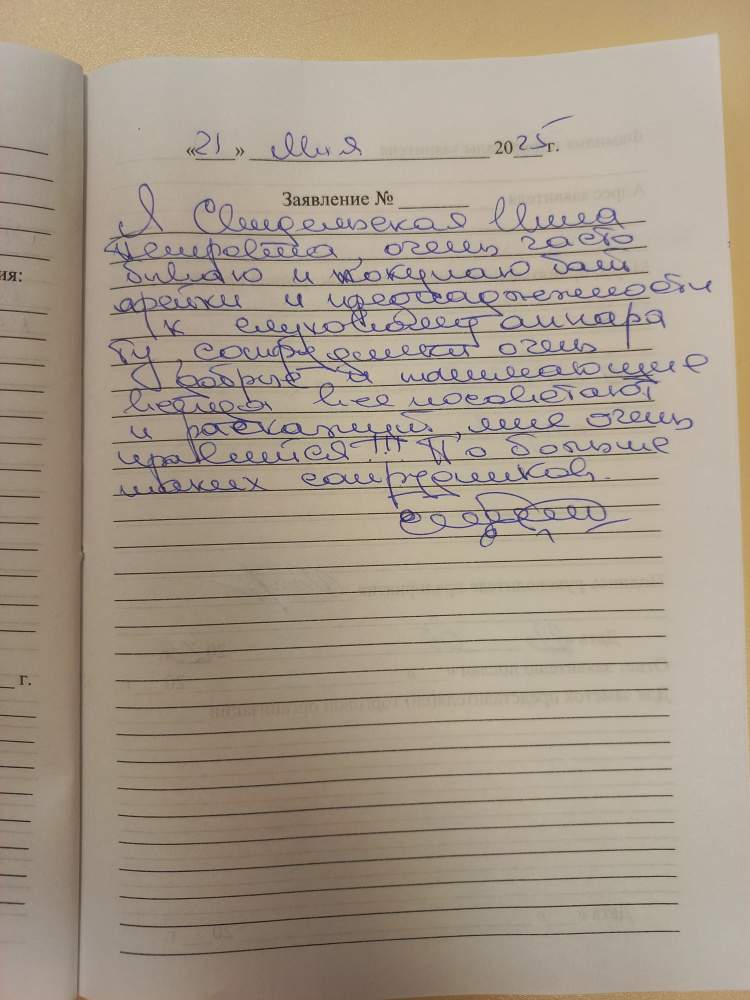 «21» Мая 2025 г.
Заявление №
Я Синдельская Инна
Петровна, очень часто
бываю и покупаю бат
арейки и пренадлежности
к слуховому аппара
ту, сотрудники очень
добрые и понимающие
всегда все посоветают
и раскажут, мне очень
нравится!!! По больше
таких сотрудников.
ия:
г.